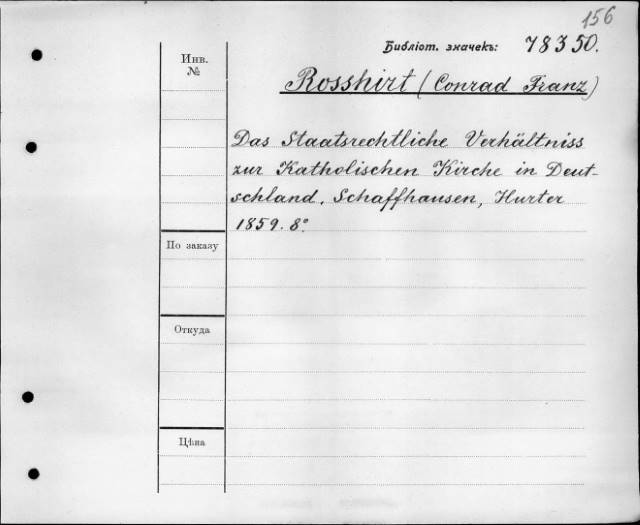 156
Библіот. значекъ: 78350.
Инв.
№
Rosshirt (Conrad Franz)
Das Staatsrechtliche Verhältniss
zur Katholischen Kirche in Deut-
schland. Schaffhausen, Hurter
1859. 8°.
По заказу
Откуда
Цѣна